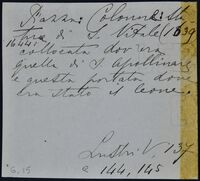 Piazza: Colonne: Sta
tua di S. Vitale (1639
1644:
collocata dov'era
quella di S. Apollinare
e questa portata dove
era stato il leone.
Lustri V. 137
e 144, 145
G. 15